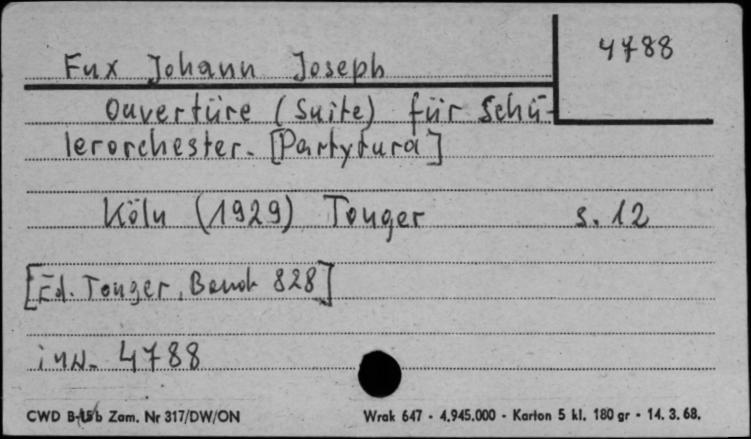 4788
Fux Johann Joseph
Ouvertüre (Suite) für Schü-
lerorchester. [Partytura]
Köln (1929) Tonger s. 12
[Ed. Tonger, Band 828]
inw. 4788
CWD Zam. Nr 317/DW/ON Wrak 647 - 4.945.000 - Karton 5 kl. 180 gr - 14. 3. 68.